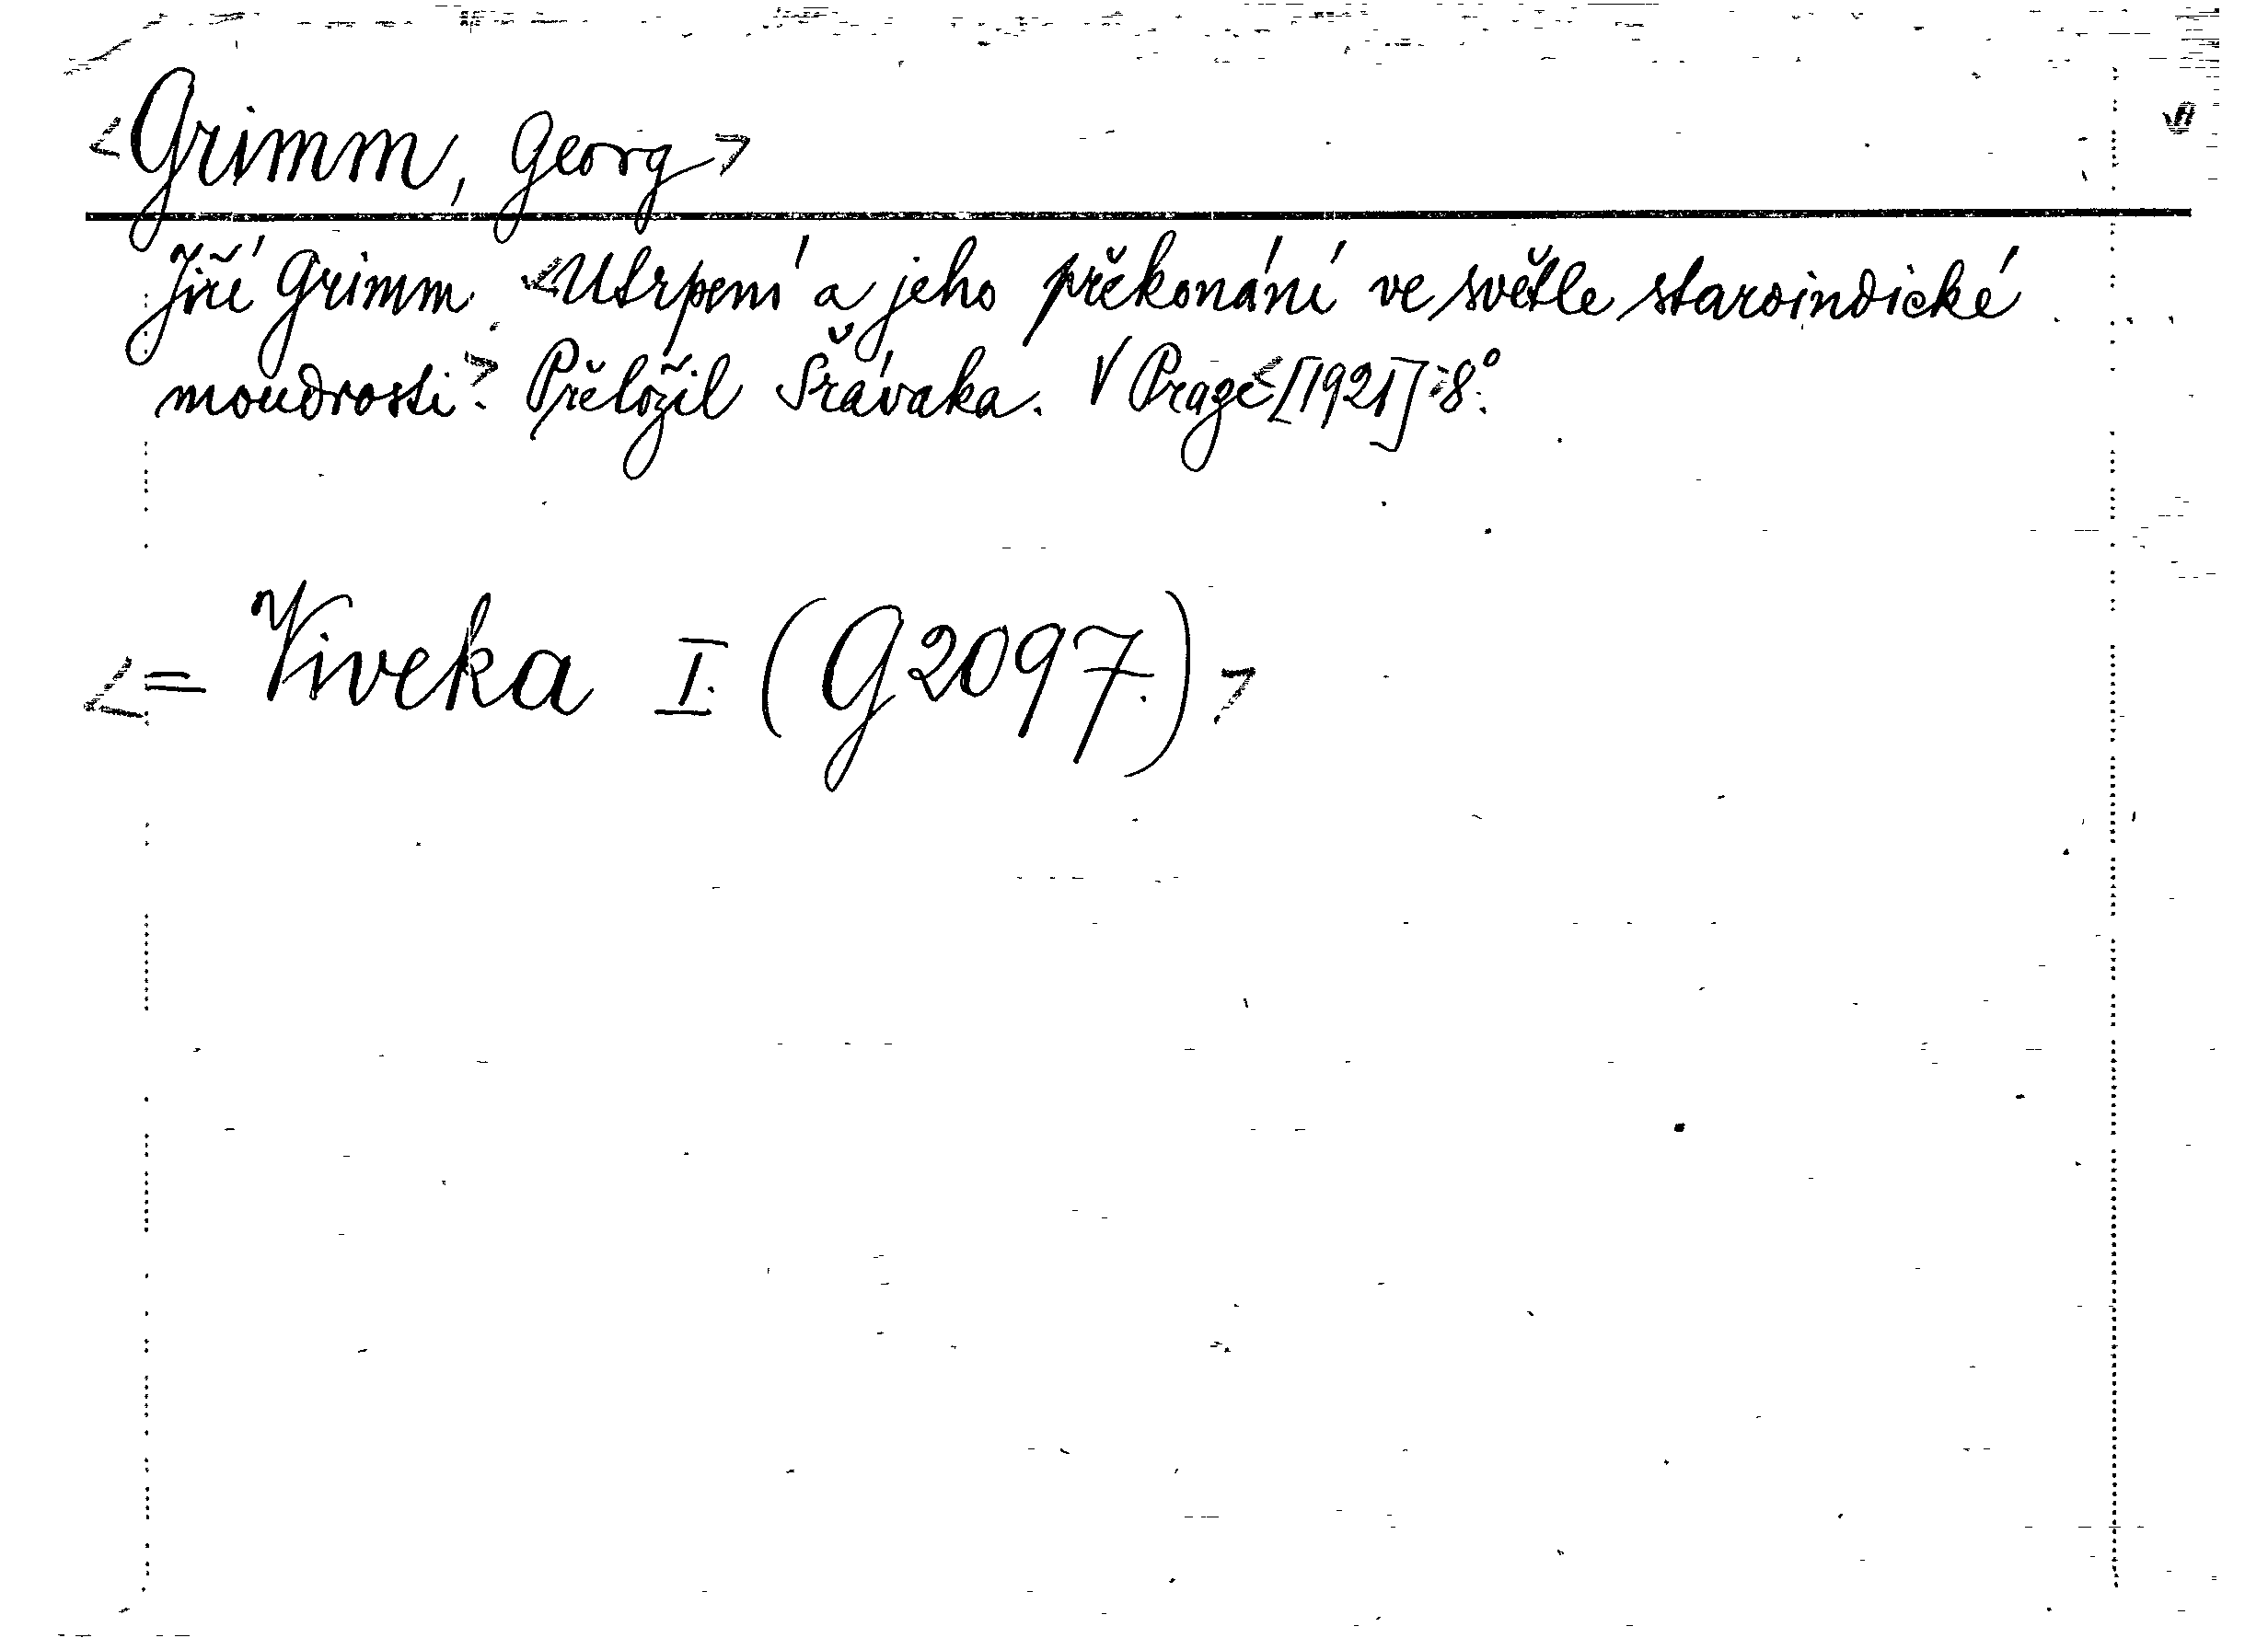 <Grimm, Georg>
Jiří Grimm. <Utrpení a jeho překonání ve světle staroindické
moudrosti>. Přeložil Šrávaka. V Praze <[1921]> 8°.
<= Viveka I. (G 2097.)>